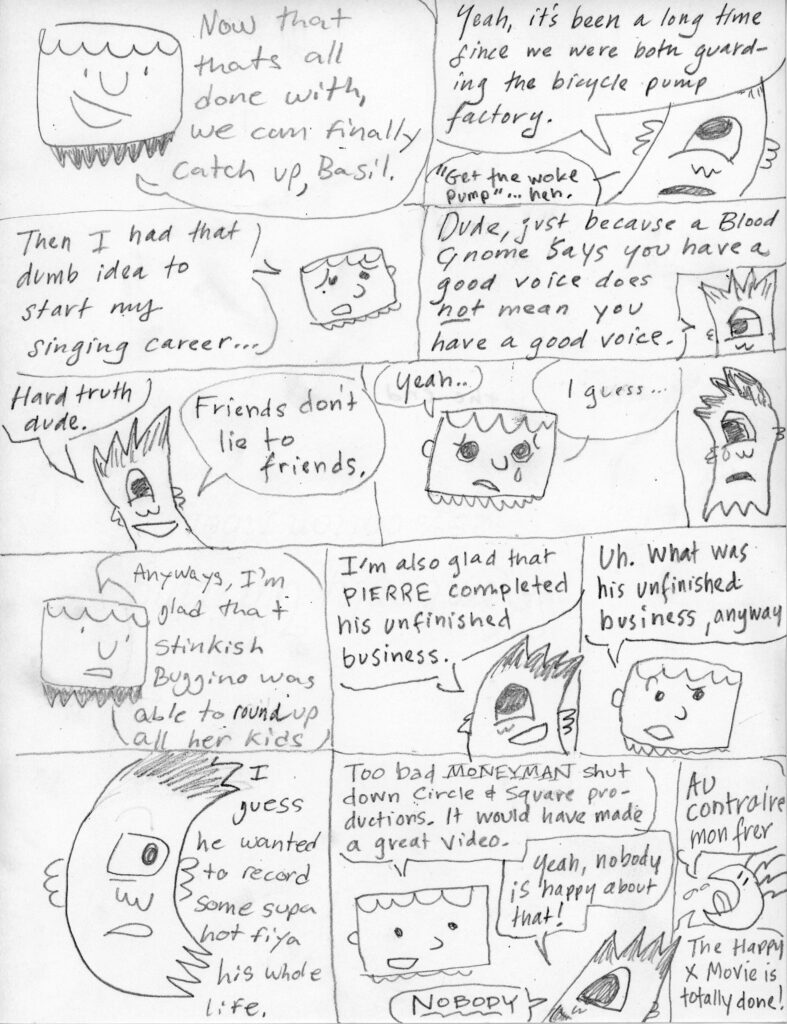 Now that
thats all
done with,
we can finally
catch up, Basil.
Yeah, it's been a long time
since we were both guard-
ing the bicycle pump
factory.
"Get the woke
pump"... heh.
Then I had that
dumb idea to
start my
singing career...
Dude, just because a Blood
Gnome Says you have a
good voice does
not mean you
have a good voice.
Hard truth
dude.
Friends don't
lie to
friends.
Yeah..
I guess...
Anyways, I'm
glad that
Stinkish
Buggino was
able to round up
all her kids
I'm also glad that
PIERRE completed
his unfinished
business.
Uh. What was
his unfinished
business, anyway
I
guess
he wanted
to record
some supa
hot fiya
his whole
life.
Too bad MONEYMAN shut
down Circle & Square pro-
ductions. It would have made
a great video.
Yeah, nobody
is happy about
that!
NOBODY
AU
contraire
mon frer
The Happy
X Movie is
totally done!